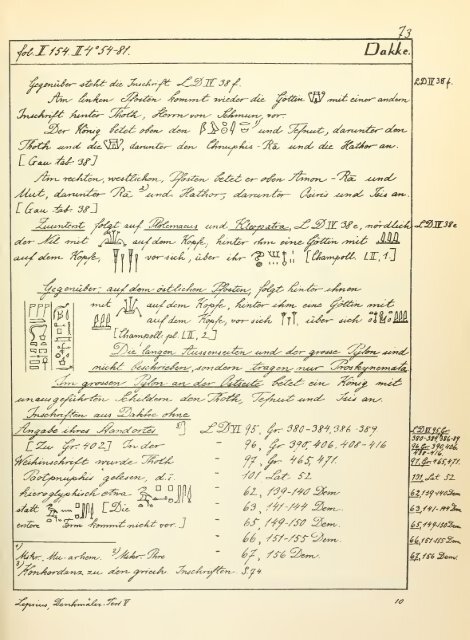 73
fol. II 154. II 4° 54-81.
Dakke.
Gegenüber steht die Inschrift L D IV 38 f.
L D IV 38 f.
Am linken Pfosten kommt wieder die Göttin mit einer andern
Inschrift hinter Thoth, Herrn von Schmun, vor.
Der König betet oben den und Tefnut, darunter den
Thoth und die, darunter den Chnuphis-Rā und die Hathor an.
[Gau tab 38]
Am rechten, westlichen, Pfosten betet er oben Amon-Rā und
Mut, darunter Rā 2) und Hathor, darunter Osiris und Isis an.
[Gau tab. 38]
Zuunterst folgt auf Ptolemaeus und Kleopatra, L D IV 38 e, nördlich
L D IV 38 e
der Nil mit auf dem Kopfe, hinter ihm eine Göttin mit
auf dem Kopfe, vor sich, über ihr [Champoll. LII, 1.]
Gegenüber, auf dem östlichen Pfosten, folgt hinter ihnen
mit auf dem Kopfe, hinter ihm eine Göttin mit
auf dem Kopfe, vor sich, über sich
[Champoll. pl. LII, 2.]
Die langen Aussenseiten und der grosse Pylon sind
nicht beschrieben, sondern tragen nur Proskynemata.
Am grossen Pylon an der Ostseite betet ein König mit
unausgeführten Schildern den Thoth, Tefnut und Isis an.
Inschriften aus Dakke ohne
Angabe ihres Standortes 3) L D VI 95, Gr. 380-384, 386-389
L D VI 95, Gr.
380-384, 386-89
[Zu Gr. 402] In der " 96, Gr 390, 406, 408-416
96, Gr 390, 406,
408-416
Weihinschrift wurde Thoth " 97, Gr 465, 471.
97, Gr 465, 471.
"Pootpnuphis" gelesen, d. i. " 101 Lat. 52
101, Lat. 52
hieroglyphisch etwa " 62, 139-140 Dem
62, 139-140 Dem
statt [Die " 63, 141-144 Dem.
63, 141-144 Dem
erstere Form kommt nicht vor.] " 65, 149-150 Dem.
65, 149-150 Dem
" 66, 151-155 Dem.
66, 151-155 Dem
" 67, 156 Dem.
67, 156 Dem.
2) Mskr. Phre
3) Konkordanz zu den griech Inschriften S. 74
Lepsius, Denkmäler. Text V
10